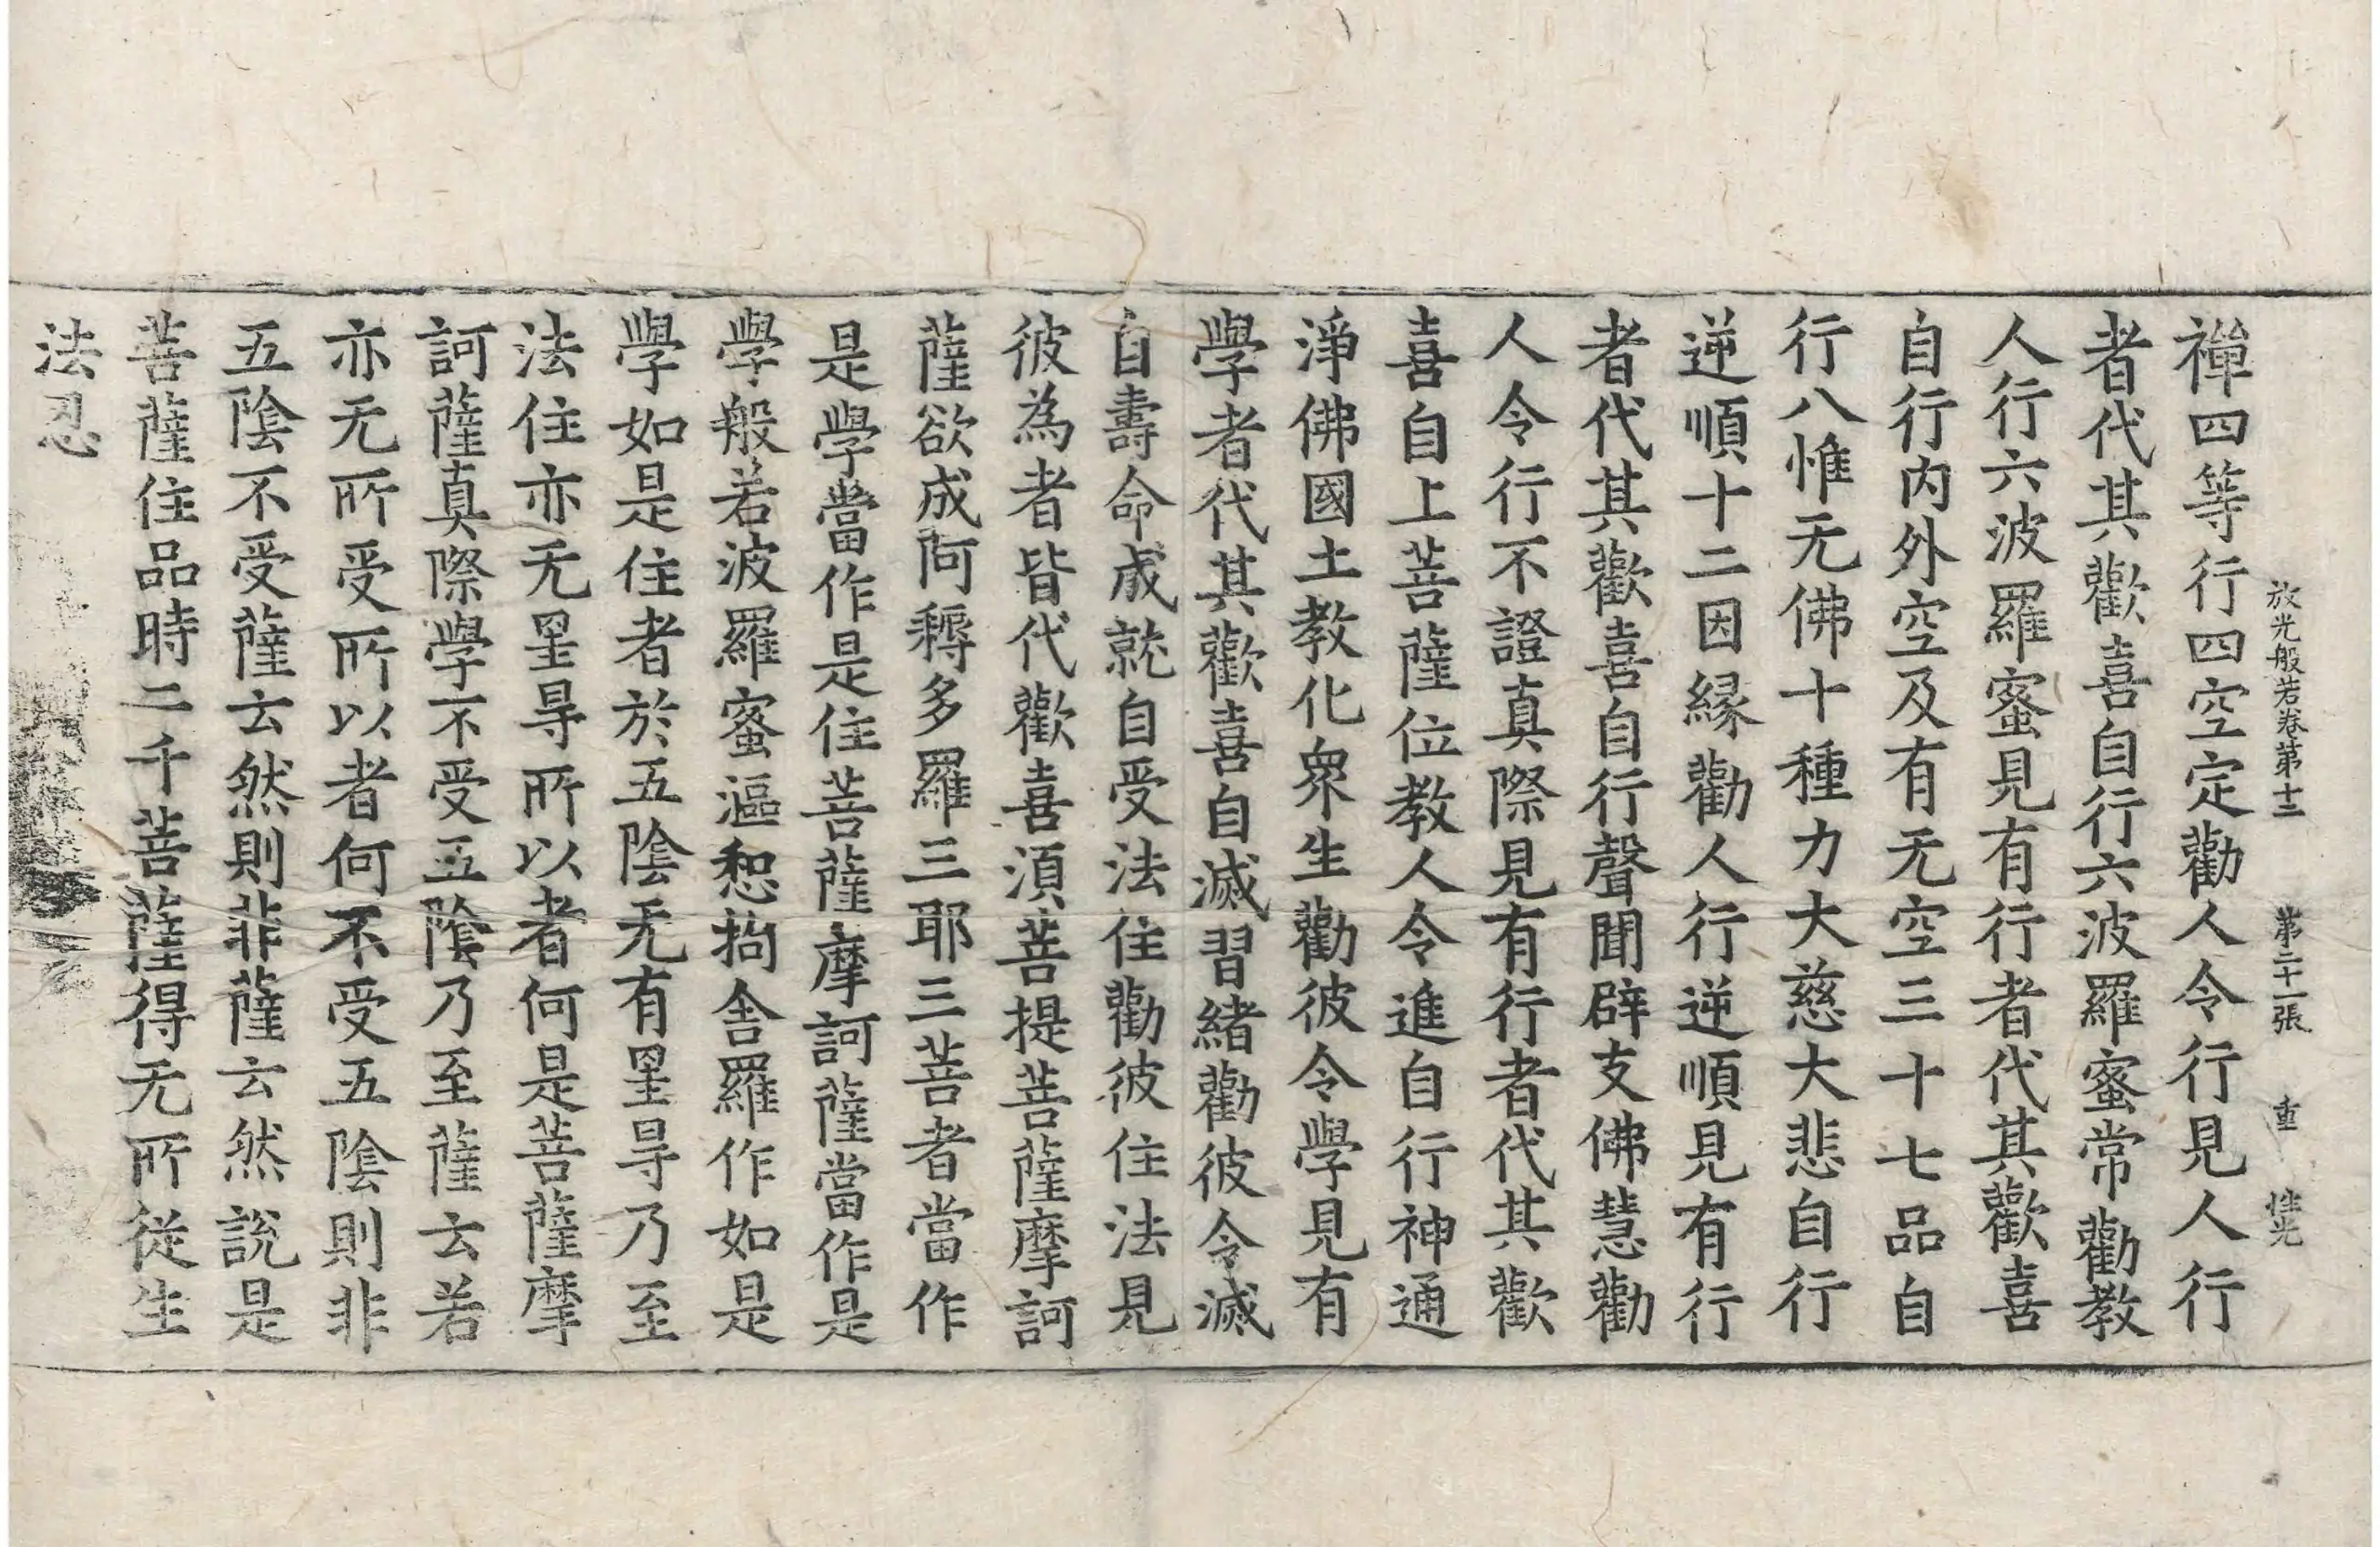 放光般若卷第十三 第二十一張 重
禪四等行四空定勸人令行見人行
者代其歡喜自行六波羅蜜常勸教
人行六波羅蜜見有行者代其歡喜
自行内外空及有无空三十七品自
行八惟无佛十種力大慈大悲自行
逆順十二因緣勸人行逆順見有行
者代其歡喜自行聲聞辟支佛慧勸
人令行不證真際見有行者代其歡
喜自上菩薩位教人令進自行神通
淨佛國土教化衆生勸彼令學見有
學者代其歡喜自滅習緒勸彼令滅
自壽命成就自受法住勸彼住法見
彼為者皆代歡喜須菩提菩薩摩訶
薩欲成阿耨多羅三耶三菩者當作
是學當作是住菩薩摩訶薩當作是
學般若波羅蜜漚惒拘舍羅作如是
學如是住者於五陰无有罣㝵乃至
法住亦无罣㝵所以者何是菩薩摩
訶薩真際學不受五陰乃至薩云若
亦无所受所以者何不受五陰則非
五陰不受薩云然則非薩云然說是
菩薩住品時二千菩薩得无所從生
法忍